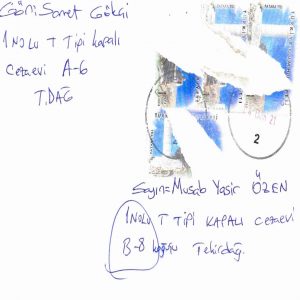 Gön: Samet Gökçe
1 NOLU T Tipi Kapalı
cezaevi A-6
T.DAĞ
2
Sayın = Musab Yasir ÖZEN
1 NOLU T TİPİ KAPALI Cezaevi
B-8 koğuşu Tekirdağ.